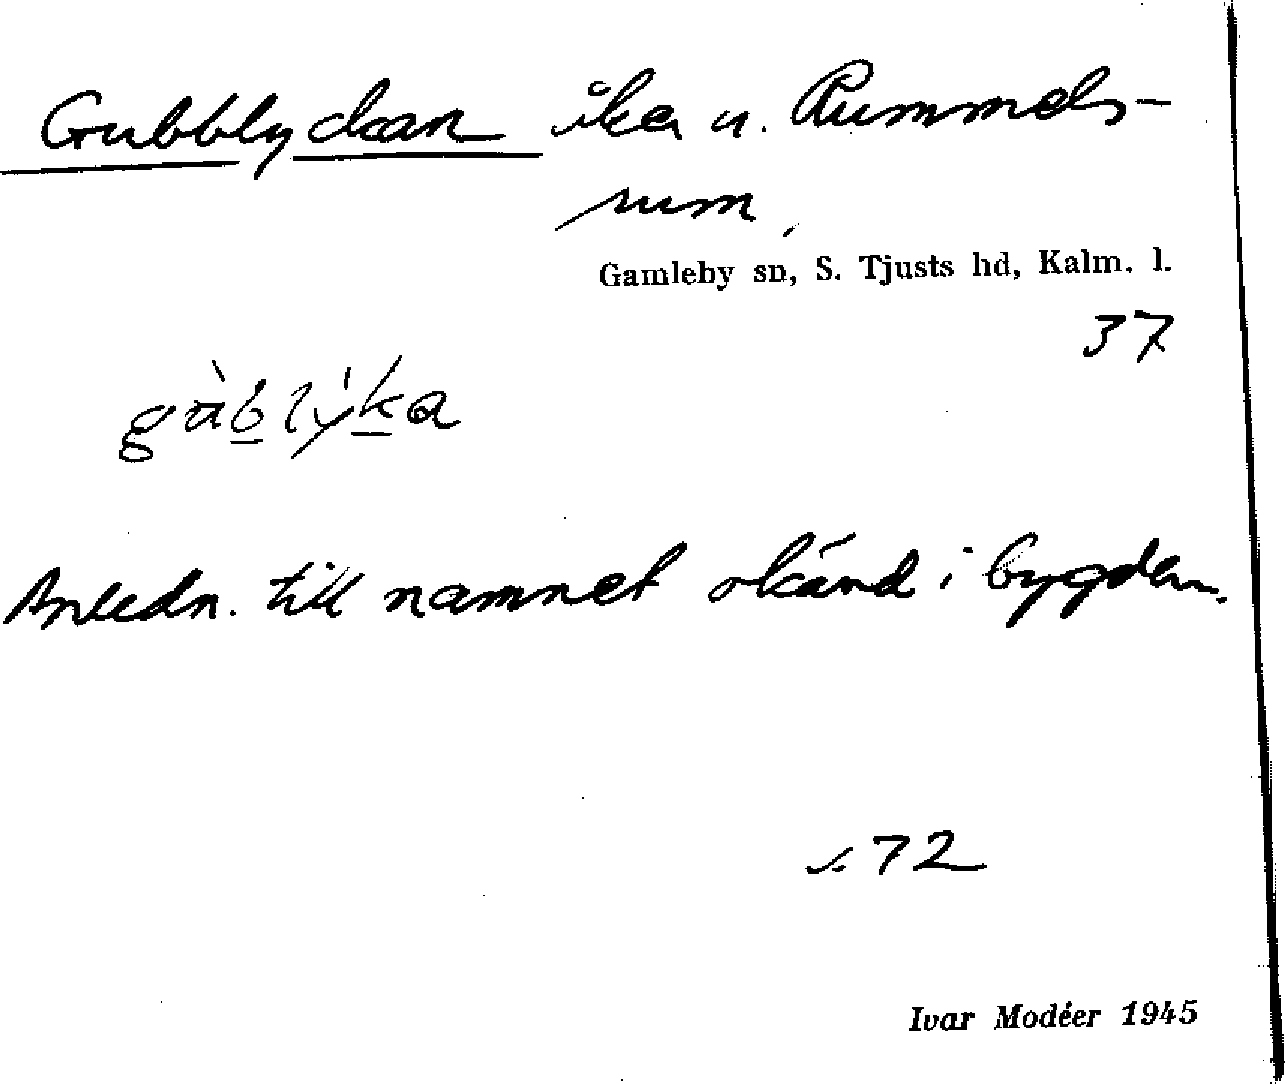 Gubblyckan åker u. Rummels-
rum,
Gamleby sn, S. Tjusts hd, Kalm. l.
37
Anledn. till namnet okänd i bygden.
s. 72
Ivar Modéer 1945